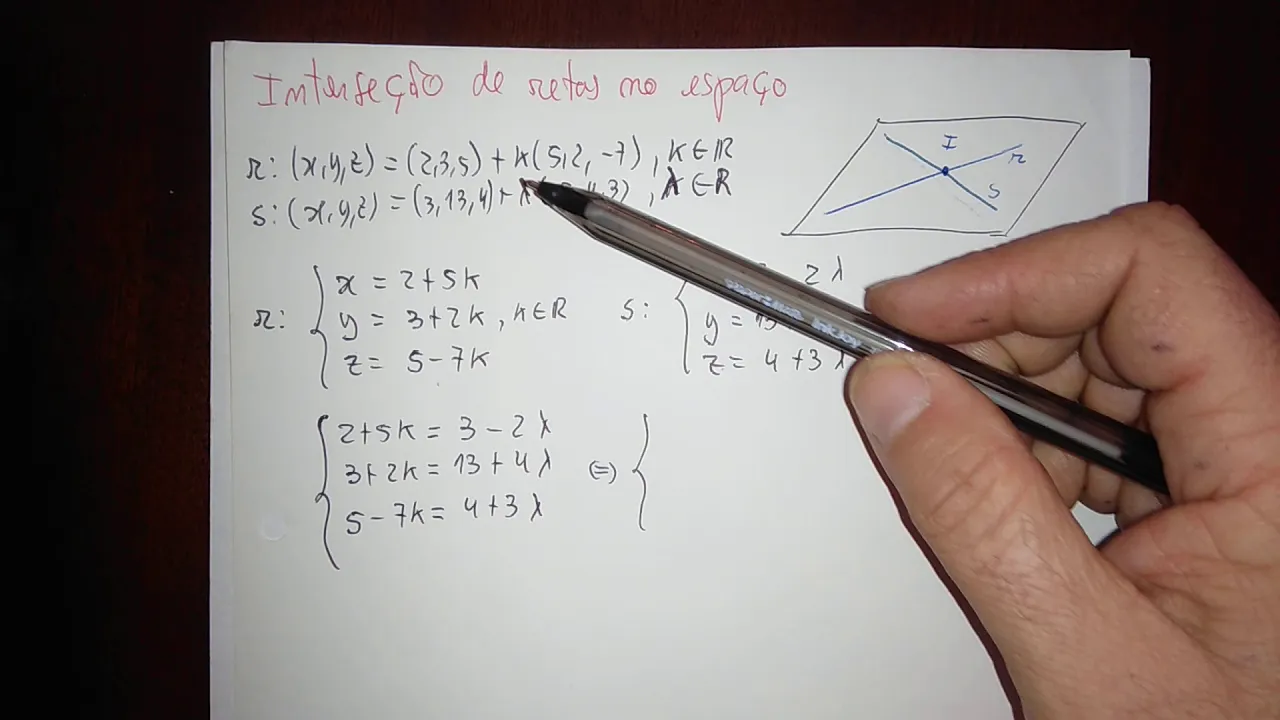 Interseção de retas no espaço
r: (x,y,z) = (2,3,5) + k(5,2,-7), k∈ℝ
s: (x,y,z) = (3,13,4) + λ 4,3), λ∈ℝ
I
r
s
r: { x = 2+5k
y = 3+2k, k∈ℝ
z = 5-7k
s: { 2λ
y = 13
z = 4+3λ
{ 2+5k = 3-2λ
3+2k = 13+4λ ⇔ {
5-7k = 4+3λ